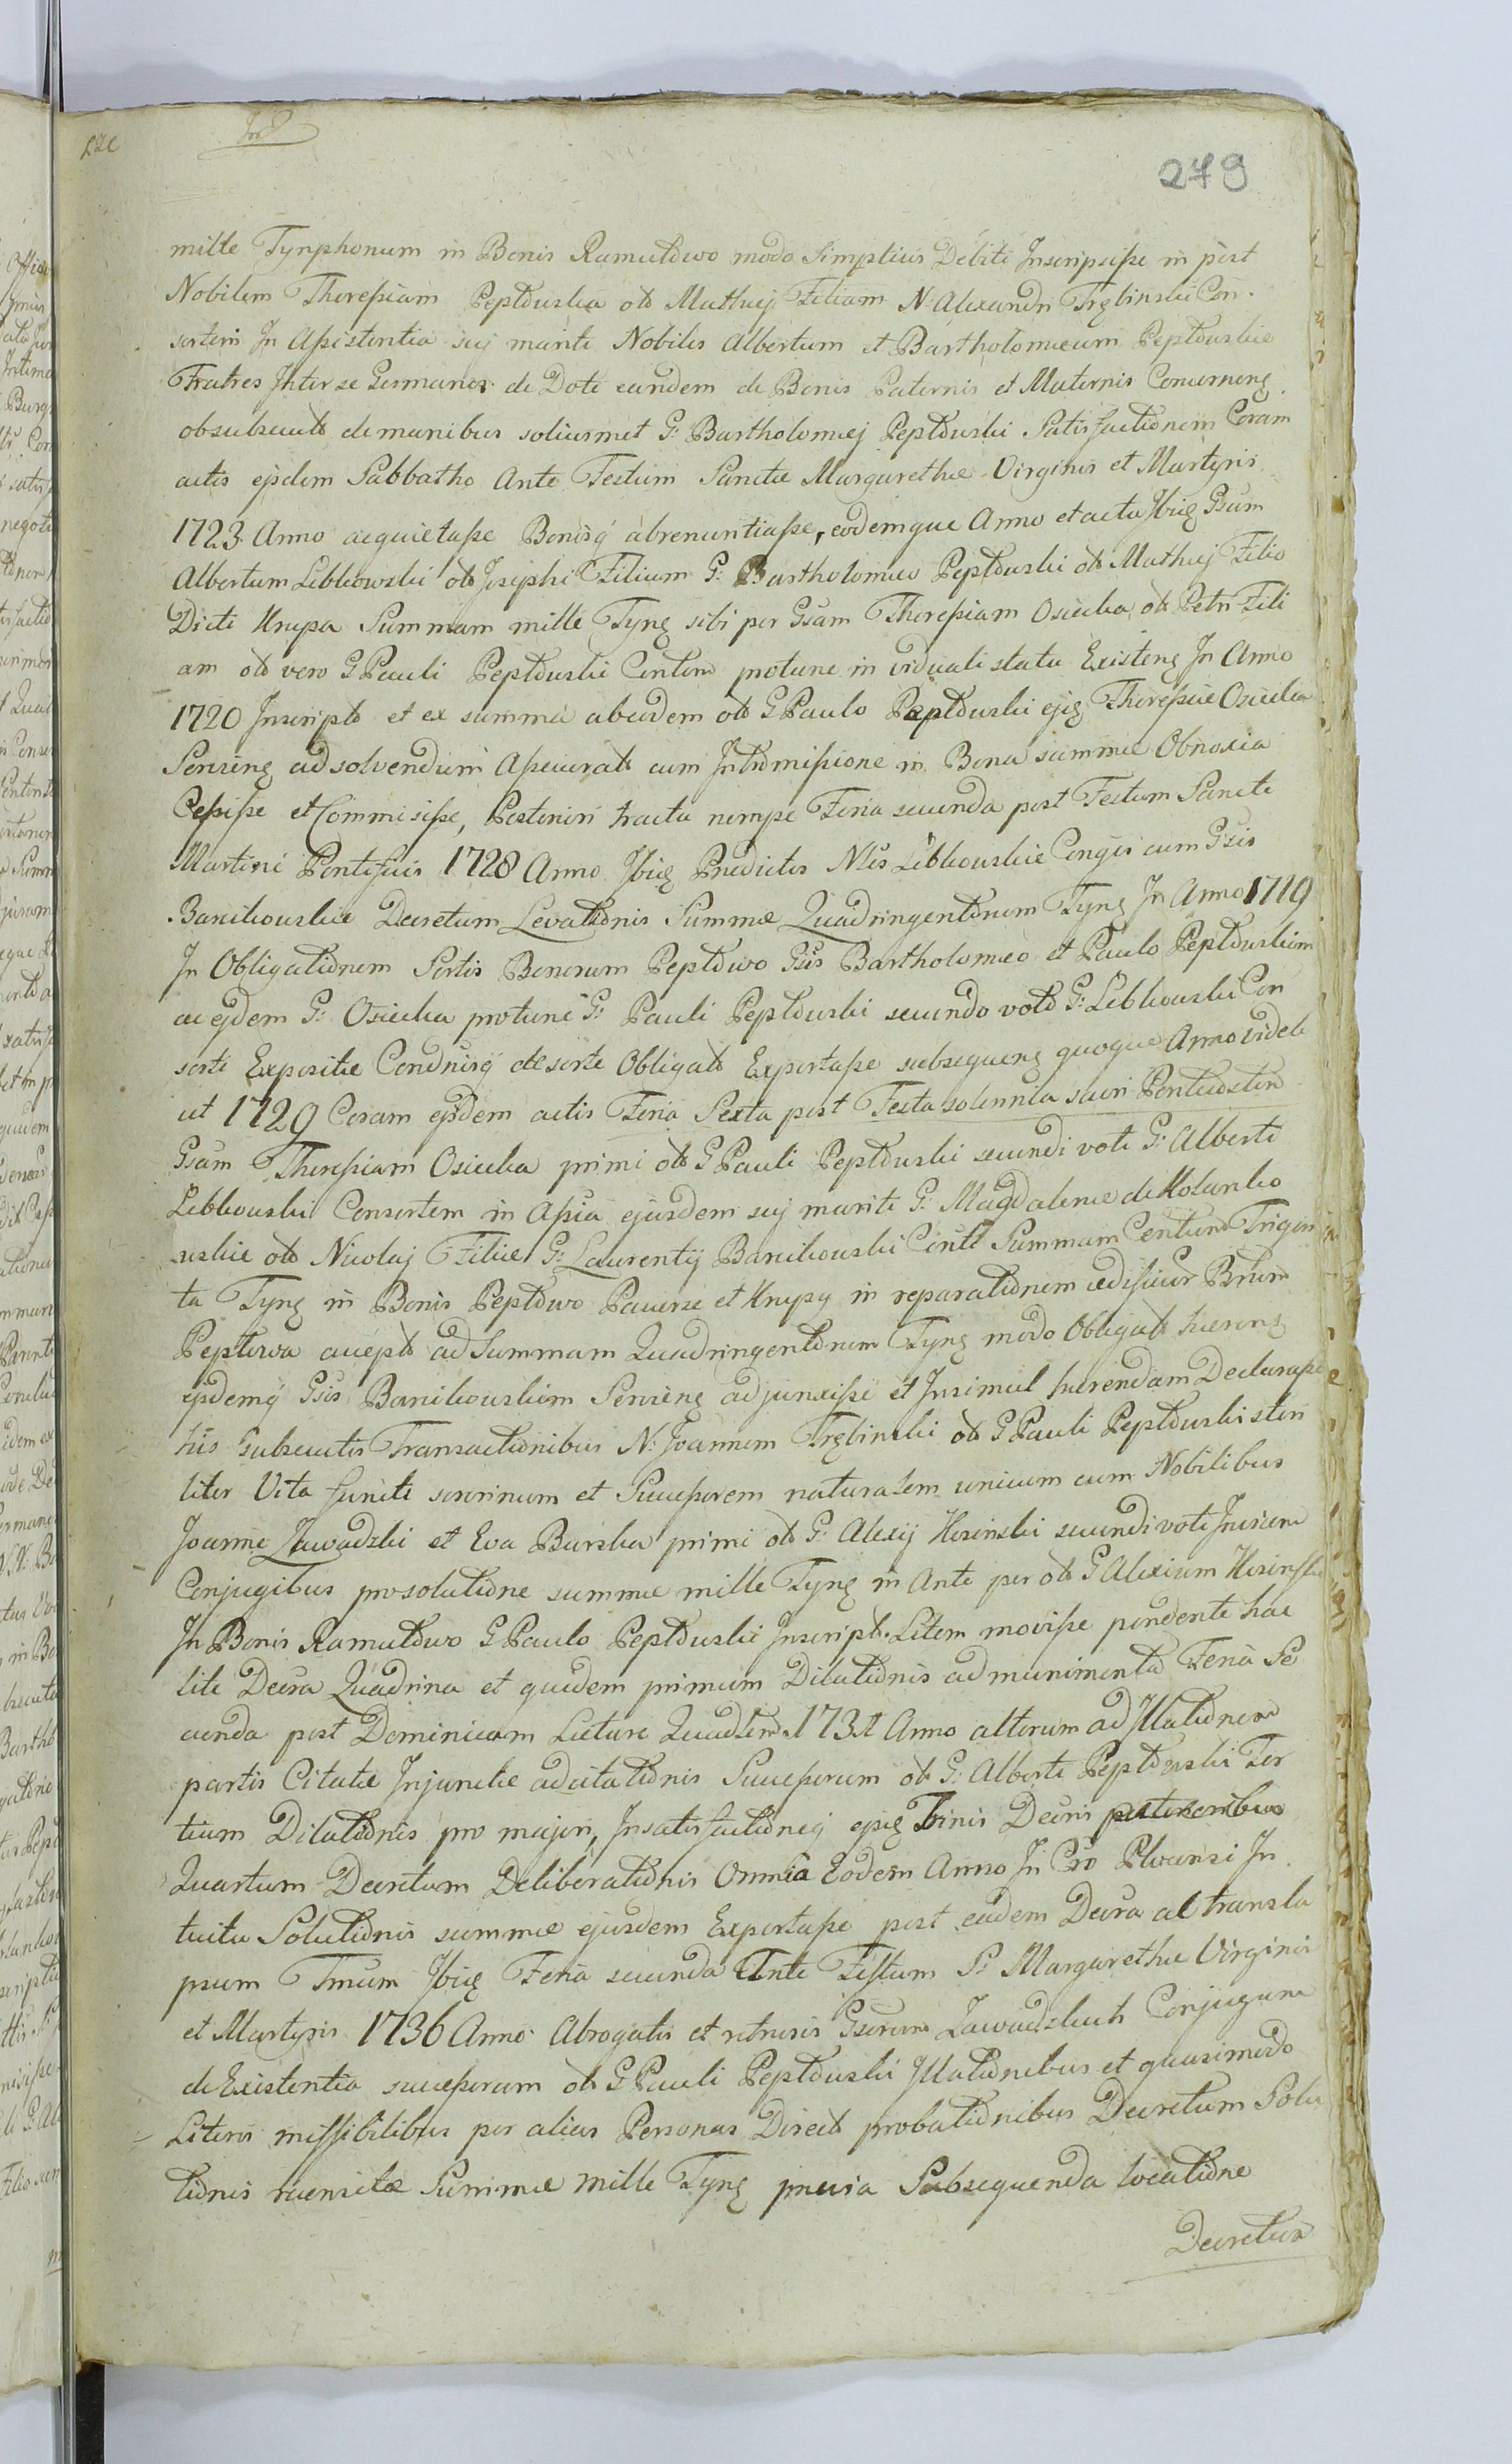 279
mille Tynphonum in Bonis Ramultowo modo Simplicis Debiti Inscripsisse in post
Nobilem Theressiam Peptowska olt Mathiej Filiam N: Alexandri Trębinski Con-
sortem In Assistentia sui mariti Nobiles Albertum et Bartholomeum Peptowskie
Fratres Inter se Germanos de Dote eandem de Bonis Paternis et Maternis Concerneng
obsubsecut de manibus solius met G: Bartholomiej Peptowski Satisfactionem Coram
actis ejsdem Sabbatho Ante Festum Sanctæ Margarethæ Virginis et Martyris
1723 Anno acquietasse Bonisq abrenuntiasse, eodemque Anno et acta Ibiq Gsum
Albertum Lebkowski olt Josephi Filium G: Bartholomeo Peptowski olt Mathiej Filio
Dicti Krupa Summam mille Tynq sibi per Gsam Theressiam Osiecka olt Petri Fili
am olt vero G Pauli Peptowski Contem protunc in viduali statu Existenq In Anno
1720 Inscript et ex summa abeadem olt G Paulo Peptowski ejq Theressiæ Osiecka
Servienq ad solvendum Assecurat cum Intromissione in Bona summæ Obnoxia
Cessisse et Commisisse, Posteriori tractu nempe Feria secunda post Festum Sancti
Martini Pontificis 1728 Anno Ibiq Prædictos Nles Lebkowskie Conges cum Gsis
Banikowskie Decretum Levationis Summæ Quadringentorum Tynq In Anno 1719
In Obligationem Sortis Bonorum Peptowo Gsis Bartholomeo et Paulo Peptowskim
ac ejdem G: Osiecka protunc G: Pauli Peptowski secundo voto G: Lebkowski Con
sorti Expositæ Condnisq de sorte Obligat Exportasse subsequenq quoque Anno videli
cet 1729 Coram ejsdem actis Feria Sexta post Festa solennia sacri Pentecosten
Gsam Theressiam Osiecka primi olt G Pauli Peptowski secundi voti G: Alberti
Lebkowski Consortem in Assia ejusdem sui mariti G: Magdalenæ de Kolanko
wskie olt Nicolaj Filiæ G: Laurentij Banikowski Conti Summam Centum Trigin
ta Tynq in Bonis Peptowo Pacierze et Krupy in reparationem ædificior Brum
Peptowa accept ad Summam Quadringentorum Tynq modo Obligat hærenq
ejsdemq Gsis Banikowskim Servienq adjunxisse et Insimul hærendam Declarasse
his subsecutis Transactionibus N: Joannem Trębinski olt G Pauli Peptowski steri
liter Vita functi sororinum et Successorem naturalem unicum cum Nobilibus
Joanne Zawadzki et Eva Barska primi olt G: Alexij Kosinski secundi voti Invicem
Conjugibus pro solutione summæ mille Tynq in Ante per olt G Alexium Kosinski
In Bonis Ramultowo G Paulo Peptowski Inscript. Litem movisse pendente hac
lite Decra Quadrina et quidem primum Dilationis ad munimenta Feria Se
cunda post Dominicam Lætare Quadlem 1731 Anno alterum ad Illationem
partis Citatæ Injunctæ adcitationis Successorum olt G: Alberti Peptowski Ter
tium Dilationis pro majori, Insatisfactioneq ejsq Binis Decris posterioribus
Quartum Decretum Deliberationis Omnia Eodem Anno In Cro Plocensi In
tuitu Solutionis summæ ejusdem Exportasse post eadem Decra al transla
psum Tmum Ibiq Feria secunda Ante Festum S: Margarethæ Virginis
et Martyris 1736 Anno Abrogatis et retrusis Gsorum Zawadzkich Conjugum
de Existentia successorum olt G Pauli Peptowski Illationibus et quasimodo
Literis missibilibus per alias Personas Direct probationibus Decretum Solu
tionis recensitæ Summæ mille Tynq prævia Subsequenda locatione
Decretum